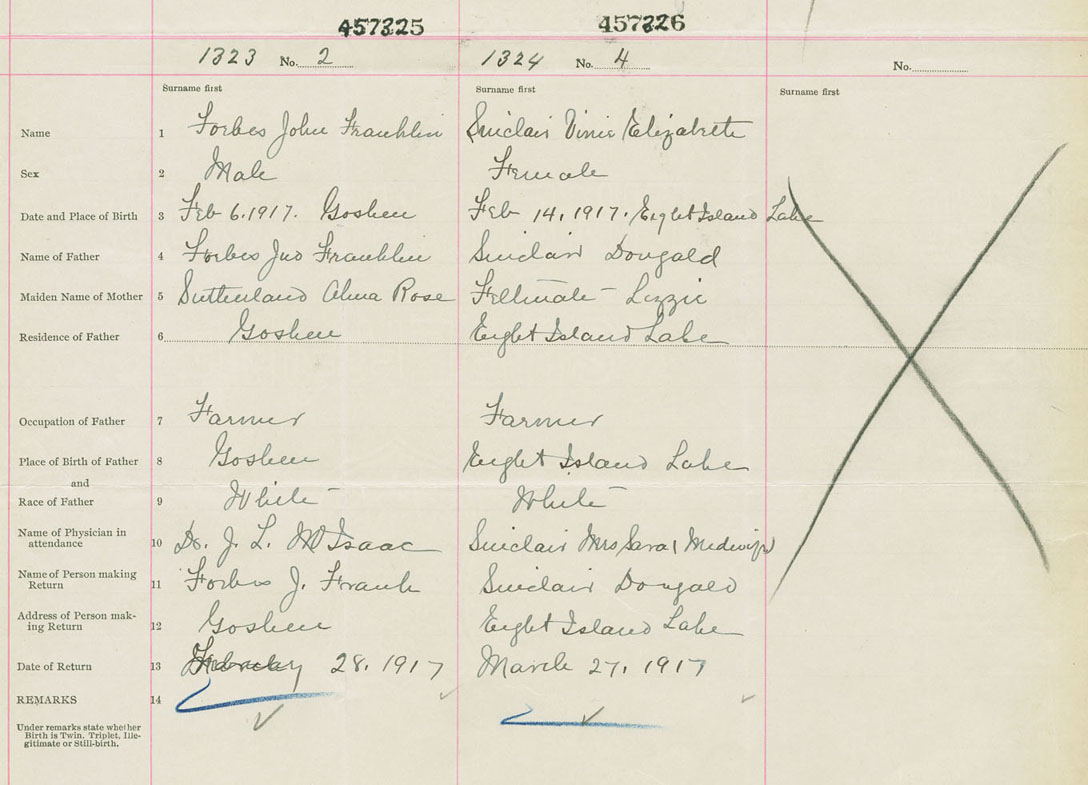 457325 457326
1323 No. 2 1324 No. 4 No.
Surname first Surname first Surname first
Name 1 Forbes John Franklin Sinclair Vinie Elizabeth
Sex 2 Male Female
Date and Place of Birth 3 Feb 6.1917. Goshen Feb 14, 1917. Eight Island Lake
Name of Father 4 Forbes Jno Franklin Sinclair Dougald
Maiden Name of Mother 5 Sutherland Alma Rose Lizzie
Residence of Father 6 Goshen Eight Island Lake
Occupation of Father 7 Farmer Farmer
Place of Birth of Father 8 Goshen Eight Island Lake
and
Race of Father 9 White White
Name of Physician in
attendance 10 Dr. J. L. McIsaac Sinclair Mrs Sara (Midwife)
Name of Person making
Return 11 Forbes J. Frank Sinclair Dougald
Address of Person mak-
ing Return 12 Goshen Eight Island Lake
Date of Return 13 28. 1917 March 27, 1917
REMARKS 14
Under remarks state whether
Birth is Twin, Triplet, Ille-
gitimate or Still-birth.